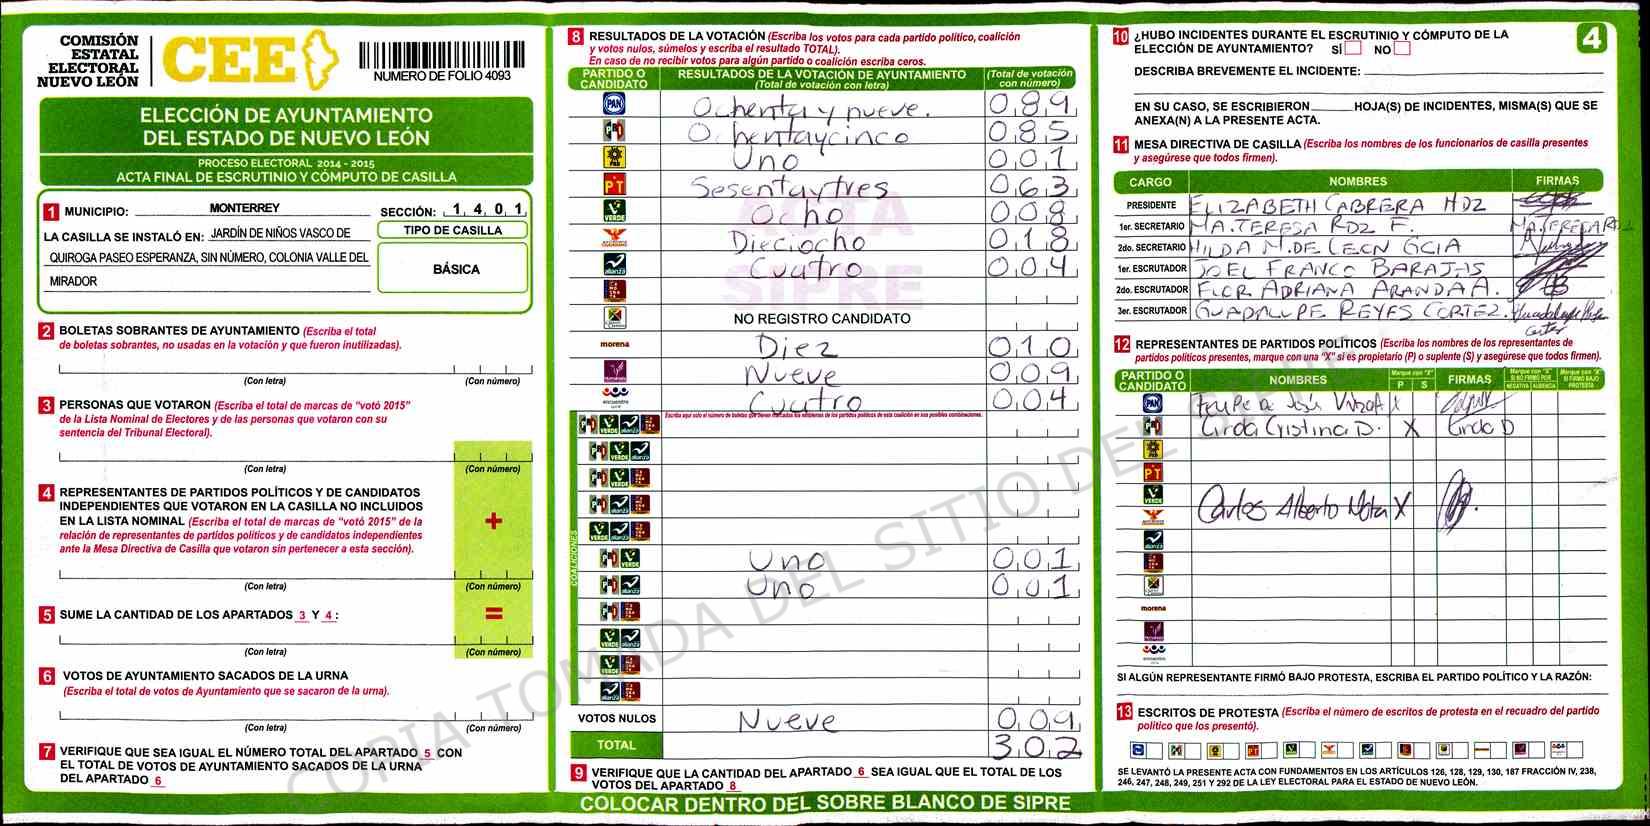 COMISIÓN
ESTATAL
ELECTORAL
NUEVO LEÓN
CEE
NUMERO DE FOLIO 4093
ELECCIÓN DE AYUNTAMIENTO
DEL ESTADO DE NUEVO LEÓN
PROCESO ELECTORAL 2014 - 2015
ACTA FINAL DE ESCRUTINIO Y CÓMPUTO DE CASILLA
1 MUNICIPIO: MONTERREY SECCIÓN: 1 4 0 1
LA CASILLA SE INSTALÓ EN: JARDÍN DE NIÑOS VASCO DE
QUIROGA PASEO ESPERANZA, SIN NÚMERO, COLONIA VALLE DEL
MIRADOR
TIPO DE CASILLA
BÁSICA
2 BOLETAS SOBRANTES DE AYUNTAMIENTO (Escriba el total
de boletas sobrantes, no usadas en la votación y que fueron inutilizadas).
(Con letra) (Con número)
3 PERSONAS QUE VOTARON (Escriba el total de marcas de "votó 2015"
de la Lista Nominal de Electores y de las personas que votaron con su
sentencia del Tribunal Electoral).
(Con letra) (Con número)
4 REPRESENTANTES DE PARTIDOS POLÍTICOS Y DE CANDIDATOS
INDEPENDIENTES QUE VOTARON EN LA CASILLA NO INCLUIDOS
EN LA LISTA NOMINAL (Escriba el total de marcas de "votó 2015" de la
relación de representantes de partidos políticos y de candidatos independientes
ante la Mesa Directiva de Casilla que votaron sin pertenecer a esta sección).
+
(Con letra) (Con número)
5 SUME LA CANTIDAD DE LOS APARTADOS 3 Y 4 :
=
(Con letra) (Con número)
6 VOTOS DE AYUNTAMIENTO SACADOS DE LA URNA
(Escriba el total de votos de Ayuntamiento que se sacaron de la urna).
(Con letra) (Con número)
7 VERIFIQUE QUE SEA IGUAL EL NÚMERO TOTAL DEL APARTADO 5 CON
EL TOTAL DE VOTOS DE AYUNTAMIENTO SACADOS DE LA URNA
DEL APARTADO 6
8 RESULTADOS DE LA VOTACIÓN (Escriba los votos para cada partido político, coalición
y votos nulos, súmelos y escriba el resultado TOTAL).
En caso de no recibir votos para algún partido o coalición escriba ceros.
PARTIDO O CANDIDATO
RESULTADOS DE LA VOTACIÓN DE AYUNTAMIENTO
(Total de votación con letra)
(Total de votación con número)
PAN Ochenta y nueve. 0 8 9
PRI Ochentaycinco 0 8 5
PRD Uno 0 0 1
PT Sesentaytres 0 6 3
VERDE Ocho 0 0 8
Dieciocho 0 1 8
alianza Cuatro 0 0 4
NO REGISTRO CANDIDATO
morena Diez 0 1 0
Nueve 0 0 9
encuentro Cuatro 0 0 4
Escriba aquí solo el número de boletas que tienen marcados los emblemas de los partidos políticos de esta coalición en sus posibles combinaciones.
COALICIONES
PRI VERDE Uno 0 0 1
PRI alianza Uno 0 0 1
VOTOS NULOS Nueve 0 0 9
TOTAL 3 0 2
9 VERIFIQUE QUE LA CANTIDAD DEL APARTADO 6 SEA IGUAL QUE EL TOTAL DE LOS
VOTOS DEL APARTADO 8
COLOCAR DENTRO DEL SOBRE BLANCO DE SIPRE
ACTA
SIPRE
COPIA TOMADA DEL SITIO DEL SIPRE
10 ¿HUBO INCIDENTES DURANTE EL ESCRUTINIO Y CÓMPUTO DE LA
ELECCIÓN DE AYUNTAMIENTO? SÍ NO
4
DESCRIBA BREVEMENTE EL INCIDENTE:
EN SU CASO, SE ESCRIBIERON HOJA(S) DE INCIDENTES, MISMA(S) QUE SE
ANEXA(N) A LA PRESENTE ACTA.
11 MESA DIRECTIVA DE CASILLA (Escriba los nombres de los funcionarios de casilla presentes
y asegúrese que todos firmen).
CARGO NOMBRES FIRMAS
PRESIDENTE ELIZABETH CABRERA HDZ
1er. SECRETARIO MA. TERESA RDZ F. MA. TERESA RDZ
2do. SECRETARIO HILDA M. DE LEON GCIA
1er. ESCRUTADOR JOEL FRANCO BARAJAS
2do. ESCRUTADOR FLOR ADRIANA ARANDA A.
3er. ESCRUTADOR GUADALUPE REYES CORTEZ. Guadalupe Reyes
Cortez
12 REPRESENTANTES DE PARTIDOS POLÍTICOS (Escriba los nombres de los representantes de
partidos políticos presentes, marque con una "X" si es propietario (P) o suplente (S) y asegúrese que todos firmen).
PARTIDO O CANDIDATO NOMBRES
Marque con "X"
P S
FIRMAS
Marque con "X" SI NO FIRMÓ POR
NEGATIVA AUSENCIA
Marque con "X" SI FIRMÓ BAJO PROTESTA
PAN Felipe de Jesús X
PRI Linda Cristina D. X Linda D
PRD
PT
VERDE Carlos Alberto Mata X
alianza
morena
encuentro
SI ALGÚN REPRESENTANTE FIRMÓ BAJO PROTESTA, ESCRIBA EL PARTIDO POLÍTICO Y LA RAZÓN:
13 ESCRITOS DE PROTESTA (Escriba el número de escritos de protesta en el recuadro del partido
político que los presentó).
SE LEVANTÓ LA PRESENTE ACTA CON FUNDAMENTOS EN LOS ARTÍCULOS 126, 128, 129, 130, 187 FRACCIÓN IV, 238,
246, 247, 248, 249, 251 Y 292 DE LA LEY ELECTORAL PARA EL ESTADO DE NUEVO LEÓN.